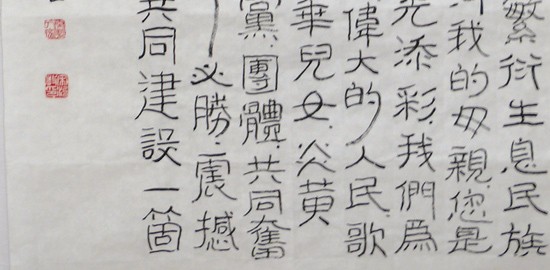 繁衍生息民族
我的母親您是
光添彩我們為
偉大的人民歌
華兒女炎黃
黨團體共同奮
必勝震撼
共同建設一箇